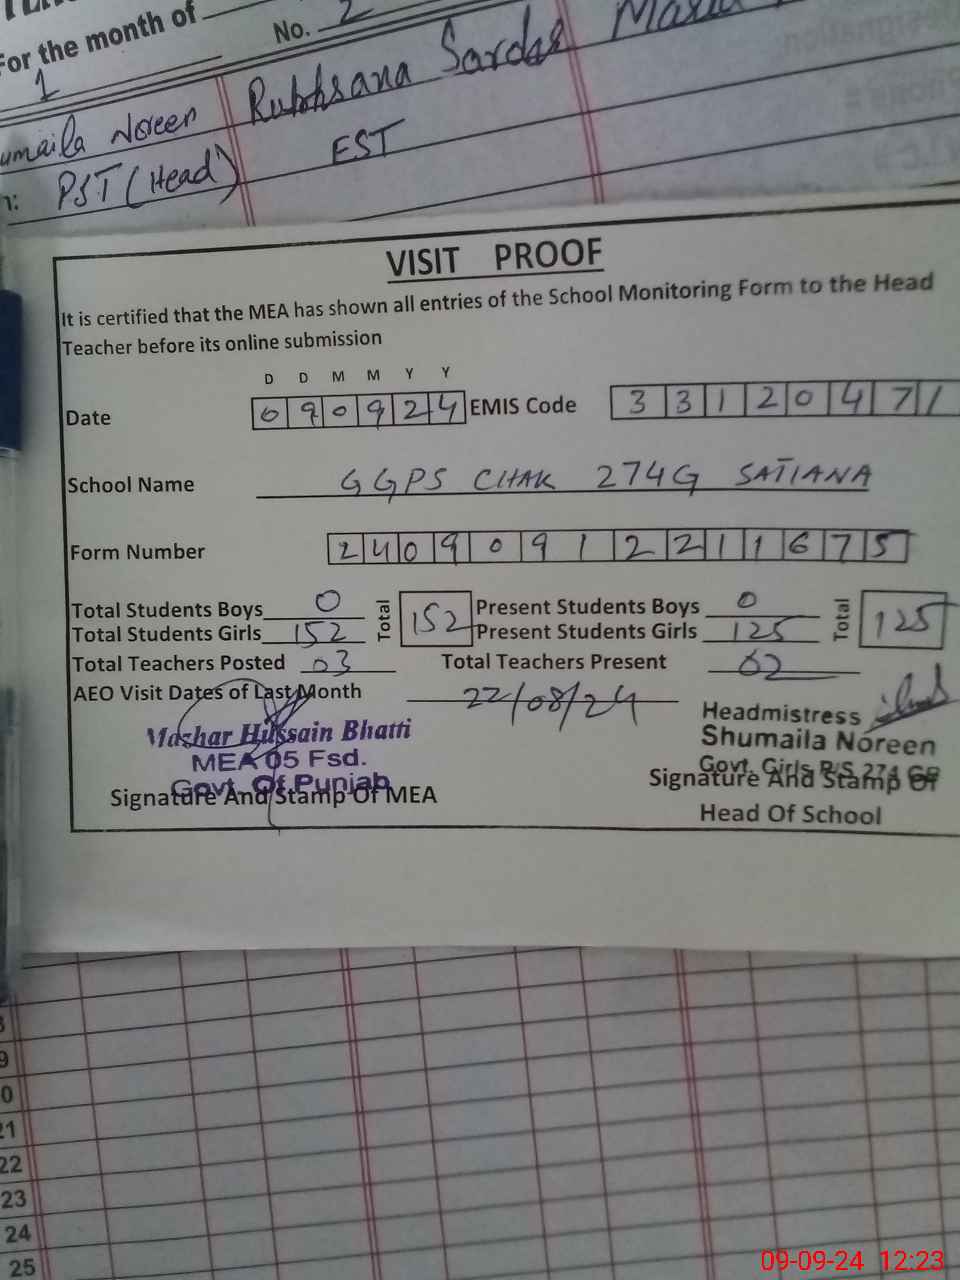 For the month of
No. 2
1
umaila Noreen Rukhsana Sardar Maria
PST (Head) EST
VISIT PROOF
It is certified that the MEA has shown all entries of the School Monitoring Form to the Head
Teacher before its online submission
D D M M Y Y
Date 090924 EMIS Code 33120471
School Name GGPS CHAK 274G SATIANA
Form Number 24090912211675
Total Students Boys 0 Total 152 Present Students Boys 0 Total 125
Total Students Girls 152 Present Students Girls 125
Total Teachers Posted 03 Total Teachers Present 02
AEO Visit Dates of Last Month 22/08/24
Mazhar Hussain Bhatti Headmistress
MEA 05 Fsd. Shumaila Noreen
Govt. Of Punjab Govt. Girls P/S 274 GB
Signature And Stamp Of MEA Signature And Stamp Of
Head Of School
9
0
21
22
23
24
25
09-09-24 12:23